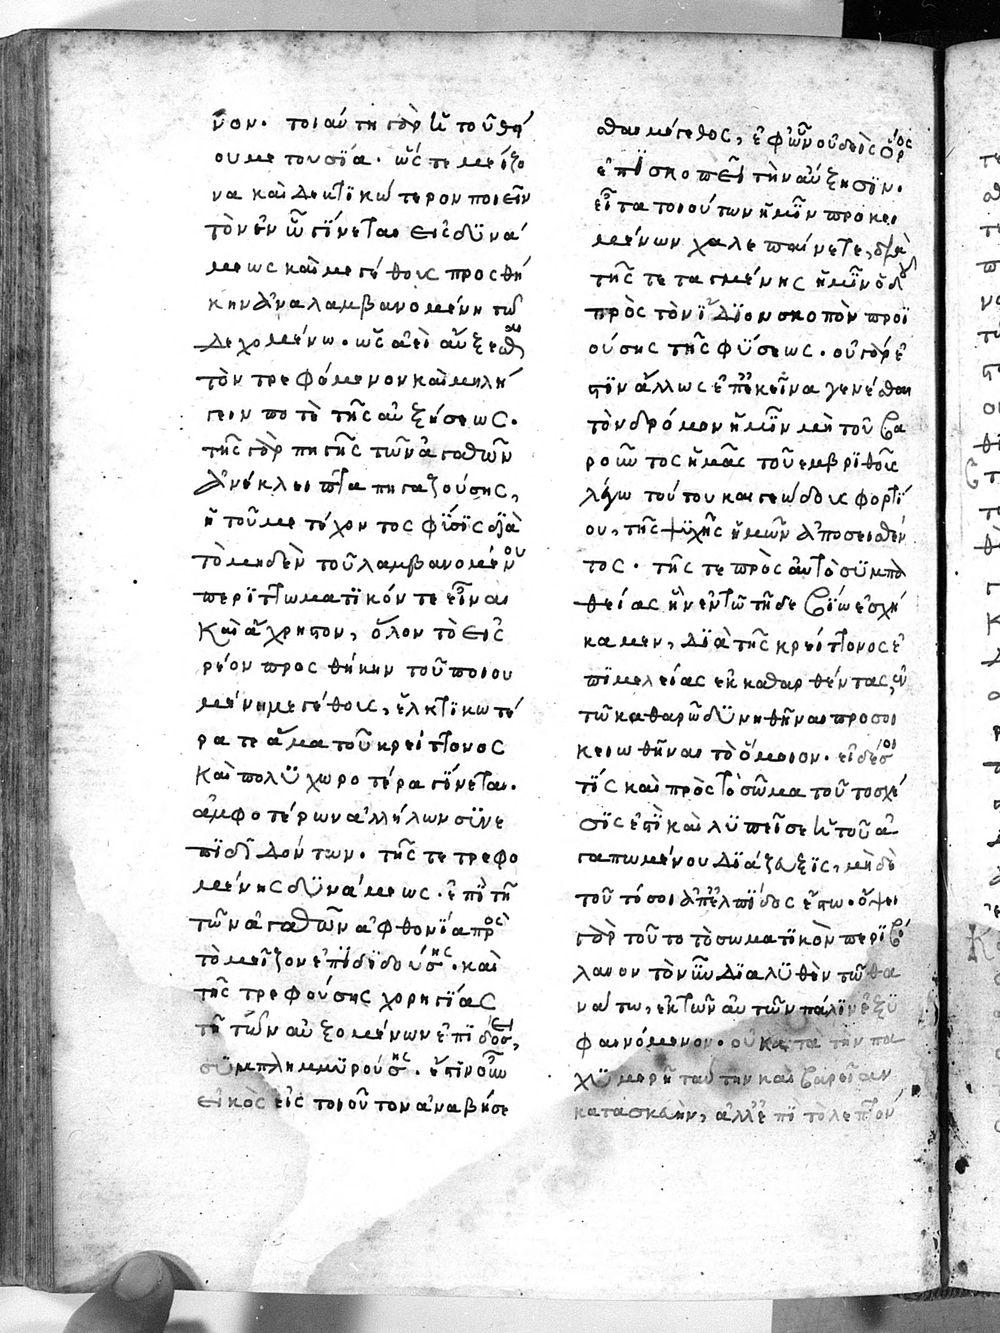 νον. τοιαύτη γὰρ ἡ τοῦ θεί
ου μετουσία. ὥς τε μείζο
να καὶ δεκτικώτερον ποιεῖν
τὸν ἐν ᾧ γίνεται. εἰς δυνά
μεως καὶ μεγέθους προσθή
κην ἀναλαμβανομένη τῷ
δεχομένω. ὡς ἀεὶ αὔξεσθαι
τὸν τρεφόμενον καὶ μὴ λή
γειν ποτὲ τῆς αὐξήσεως.
τῆς γὰρ πηγῆς τῶν ἀγαθῶν
ἀνέκλειπτα πηγαζούσης,
ἡ τοῦ μετέχοντος φύσις διὰ
τὸ μηδὲν τοῦ λαμβανομένου
περιττωματικόν τε εἶναι
καὶ ἄχρηστον, ὅλον τὸ εἰς
ρέον προσθήκην τοῦ ποιου
μένη μεγέθους, ἑλκτικωτέ
ρα τε ἅμα τοῦ κρείττονος
καὶ πολυχωροτέρα γίνεται.
ἀμφοτέρων ἀλλήλων συνε
πιδιδόντων. τῆς τε τρεφο
μένης δυνάμεως. ἐπὶ τῆ
τῶν ἀγαθῶν ἀφθονία πρὸς
τὸ μεῖζον ἐπιδιδούσης. καὶ
τῆς τρεφούσης χορηγίας
τῆ τῶν αὐξομένων ἐπιδόσει,
συμπλημμυρούσης. ἔστιν οὖν
εἰκὸς εἰς τοιοῦτον ἀναβήσε
σθαι μέγεθος, ἐφ' ὧν οὐδεὶς ὅρος
ἐπισκοπεῖ τὴν αὔξησιν.
εἶτα τοιούτων ἡμῖν προκει
μένων χαλεπαίνετε, διὰ
τῆς τεταγμένης ἡμῖν ὁδοῦ
πρὸς τὸν ἴδιον σκοπὸν προϊ
ούσης τῆς φύσεως. οὐ γάρ ἐ
στιν ἄλλως ἐπ' ἐκεῖνα γενέσθαι
τὸν δρόμον ἡμῖν μὴ τοῦ βα
ροῦντος ἡμᾶς τοῦ ἐμβριθοῦς
λέγω τούτου καὶ γεώδους φορτί
ου, τῆς ψυχῆς ἡμῶν ἀποσεισθέν
τος. τῆς τε πρὸς αὐτὸ συμπα
θείας ἣν ἐν τῶ τῆδε βίω ἐσχή
καμεν, διὰ τῆς κρείττονος ἐ
πιμελείας ἐκκαθαρθέντας, ἐν
τῶ καθαρῶ δυνηθῆναι προσοι
κειωθῆναι τὸ ὅμοιον. εἰ δέ σοί
τίς καὶ πρὸς τὸ σῶμα τοῦτο σχέ
σις ἐστὶ καὶ λυπεῖ σε ἡ τοῦ ἀ
γαπωμένου διάζευξις, μὴ δὲ
τοῦτό σοι ἀπ' ἐλπίδος ἔστω. ὄψει
γὰρ τοῦτο τὸ σωματικὸν περιβό
λαιον τὸ νῦν διαλυθὲν τῶ θα
νάτω, ἐκ τῶν αὐτῶν πάλιν ἐξυ
φαινόμενον. οὐ κατὰ τὴν πα
χυμερῆ ταύτην καὶ βαρεῖαν
κατασκευὴν, ἀλλ' ἐπὶ τὸ λεπτόν